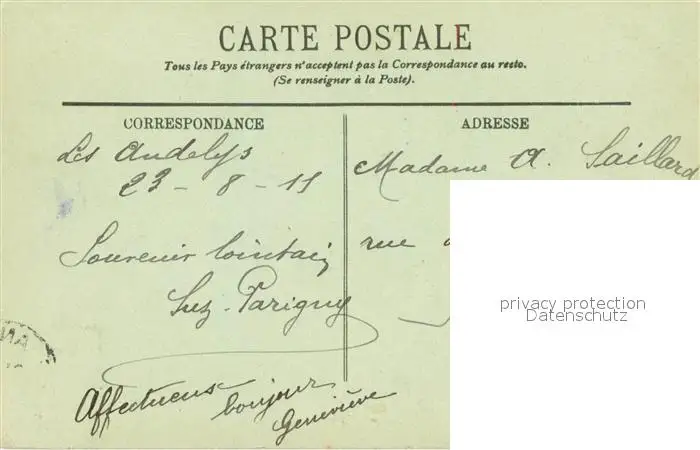 CARTE POSTALE
Tous les Pays étrangers n'acceptent pas la Correspondance au recto.
(Se renseigner à la Poste).
CORRESPONDANCE
Les Andelys
23 - 8 - 11
Souvenir lointain
Luz-Parigny
Affectueux
bonjour
Geneviève
ADRESSE
Madame A. Saillard
rue
privacy protection
Datenschutz